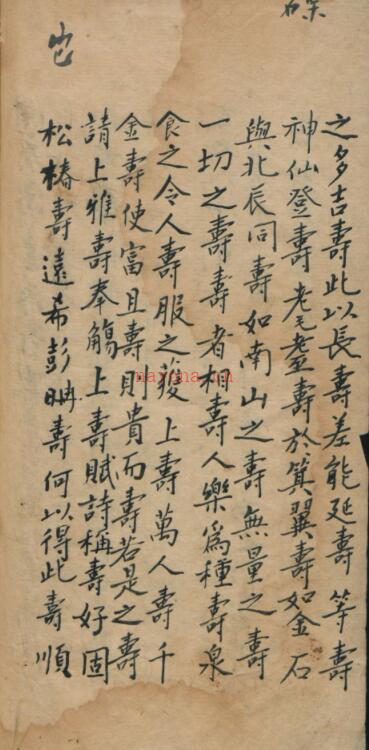 之多吉壽此以長壽差能延壽等壽
神仙登壽耄耋壽於箕翼壽如金石
與北辰同壽如南山之壽無量之壽
一切之壽壽者相壽人樂爲種壽泉
食之令人壽服之獲上壽萬人壽千
金壽使富且壽則貴而壽若是之壽
請上雅壽奉觴上壽賦詩稱壽好固
松椿壽遠希彭聃壽何以得此壽順